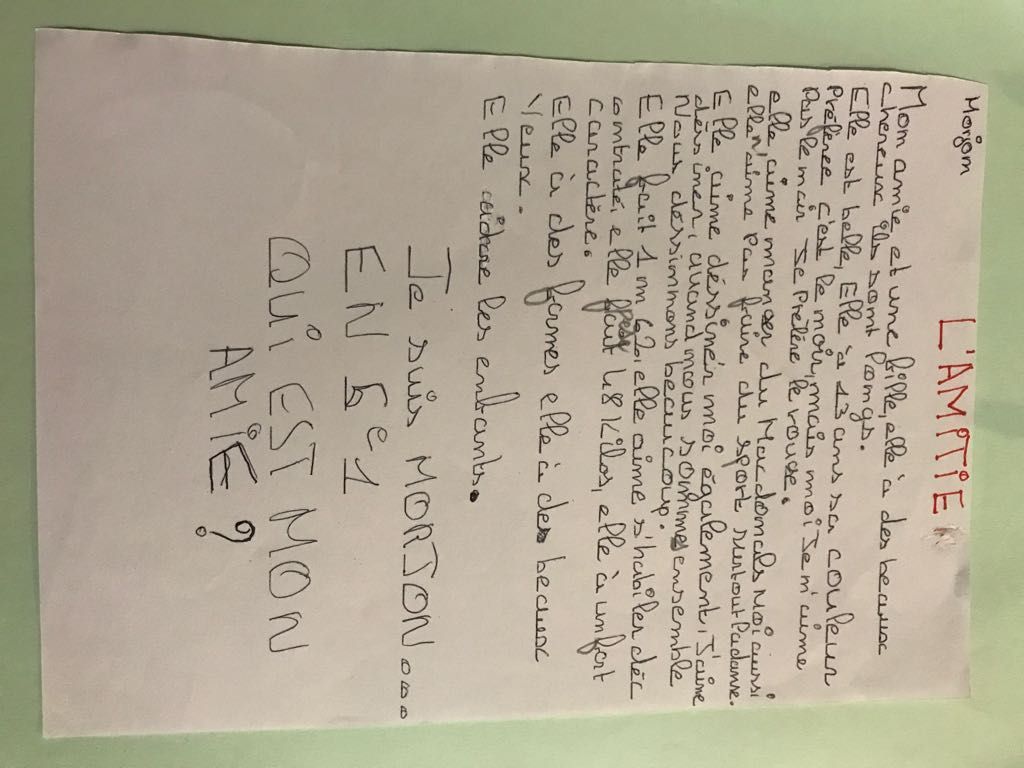 Morjom
L'AMITIE
Mon amie et une fille, elle à des beaux
cheveux ils sont longs.
Elle est belle, Elle à 13 ans sa couleur
Préférée c'est le noir, mais moi Je n'aime
Pas le noir Je Préfère le rouge.
elle aime manger du Macdonals moi aussi
elle n'aime Pas faire du sport surtout la danse.
Elle aime déssinéir moi également, J'aime
déssiner, quand nous sommes ensemble
Nous dessinnons beaucoup.
Elle fait 1m 62, elle aime s'habiler déc
ontracté, elle fait 48 Kilos, elle à un fort
caractère.
Elle à des formes elle à des beaux
Yeux.
Elle adore les enfants.
Je suis MORJON...
EN 5e1
QUI EST MON
AMIE?